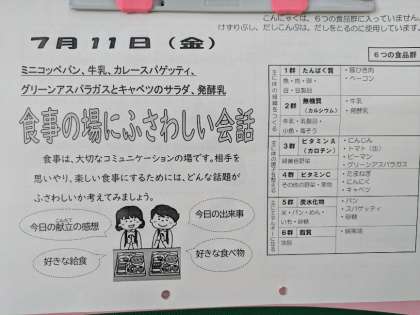 こんにゃくは、6つの食品群に入っていません。
けずりぶし、だしこんぶは、だしをとるのに使用しています。
7月11日(金)
ミニコッペパン、牛乳、カレースパゲッティ、
グリーンアスパラガスとキャベツのサラダ、発酵乳
食事の場にふさわしい会話
食事は、大切なコミュニケーションの場です。相手を
思いやり、楽しい食事にするためには、どんな話題が
ふさわしいか考えてみましょう。
今日の献立の感想
こんだて
今日の出来事
好きな給食
好きな食べ物
6つの食品群
1群 たんぱく質
魚・肉・卵・
豆・豆製品
・豚ひき肉
・ベーコン
2群 無機質
(カルシウム)
牛乳・乳製品・
小魚・海そう
・牛乳
・発酵乳
3群 ビタミンA
(カロテン)
緑黄色野菜
・にんじん
・トマト(缶)
・ピーマン
・グリーンアスパラガス
4群 ビタミンC
その他の野菜・果物
・たまねぎ
・にんにく
・キャベツ
5群 炭水化物
米・パン・めん・
いも・砂糖
・パン
・スパゲティ
・砂糖
6群 脂質
油脂